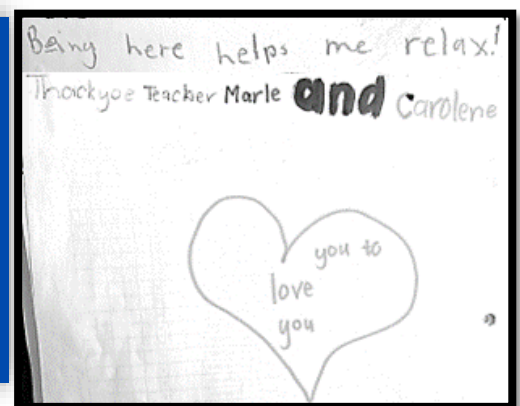 Being here helps me relax!
Thackyoe Teacher Marle and Carolene
you to
love
you